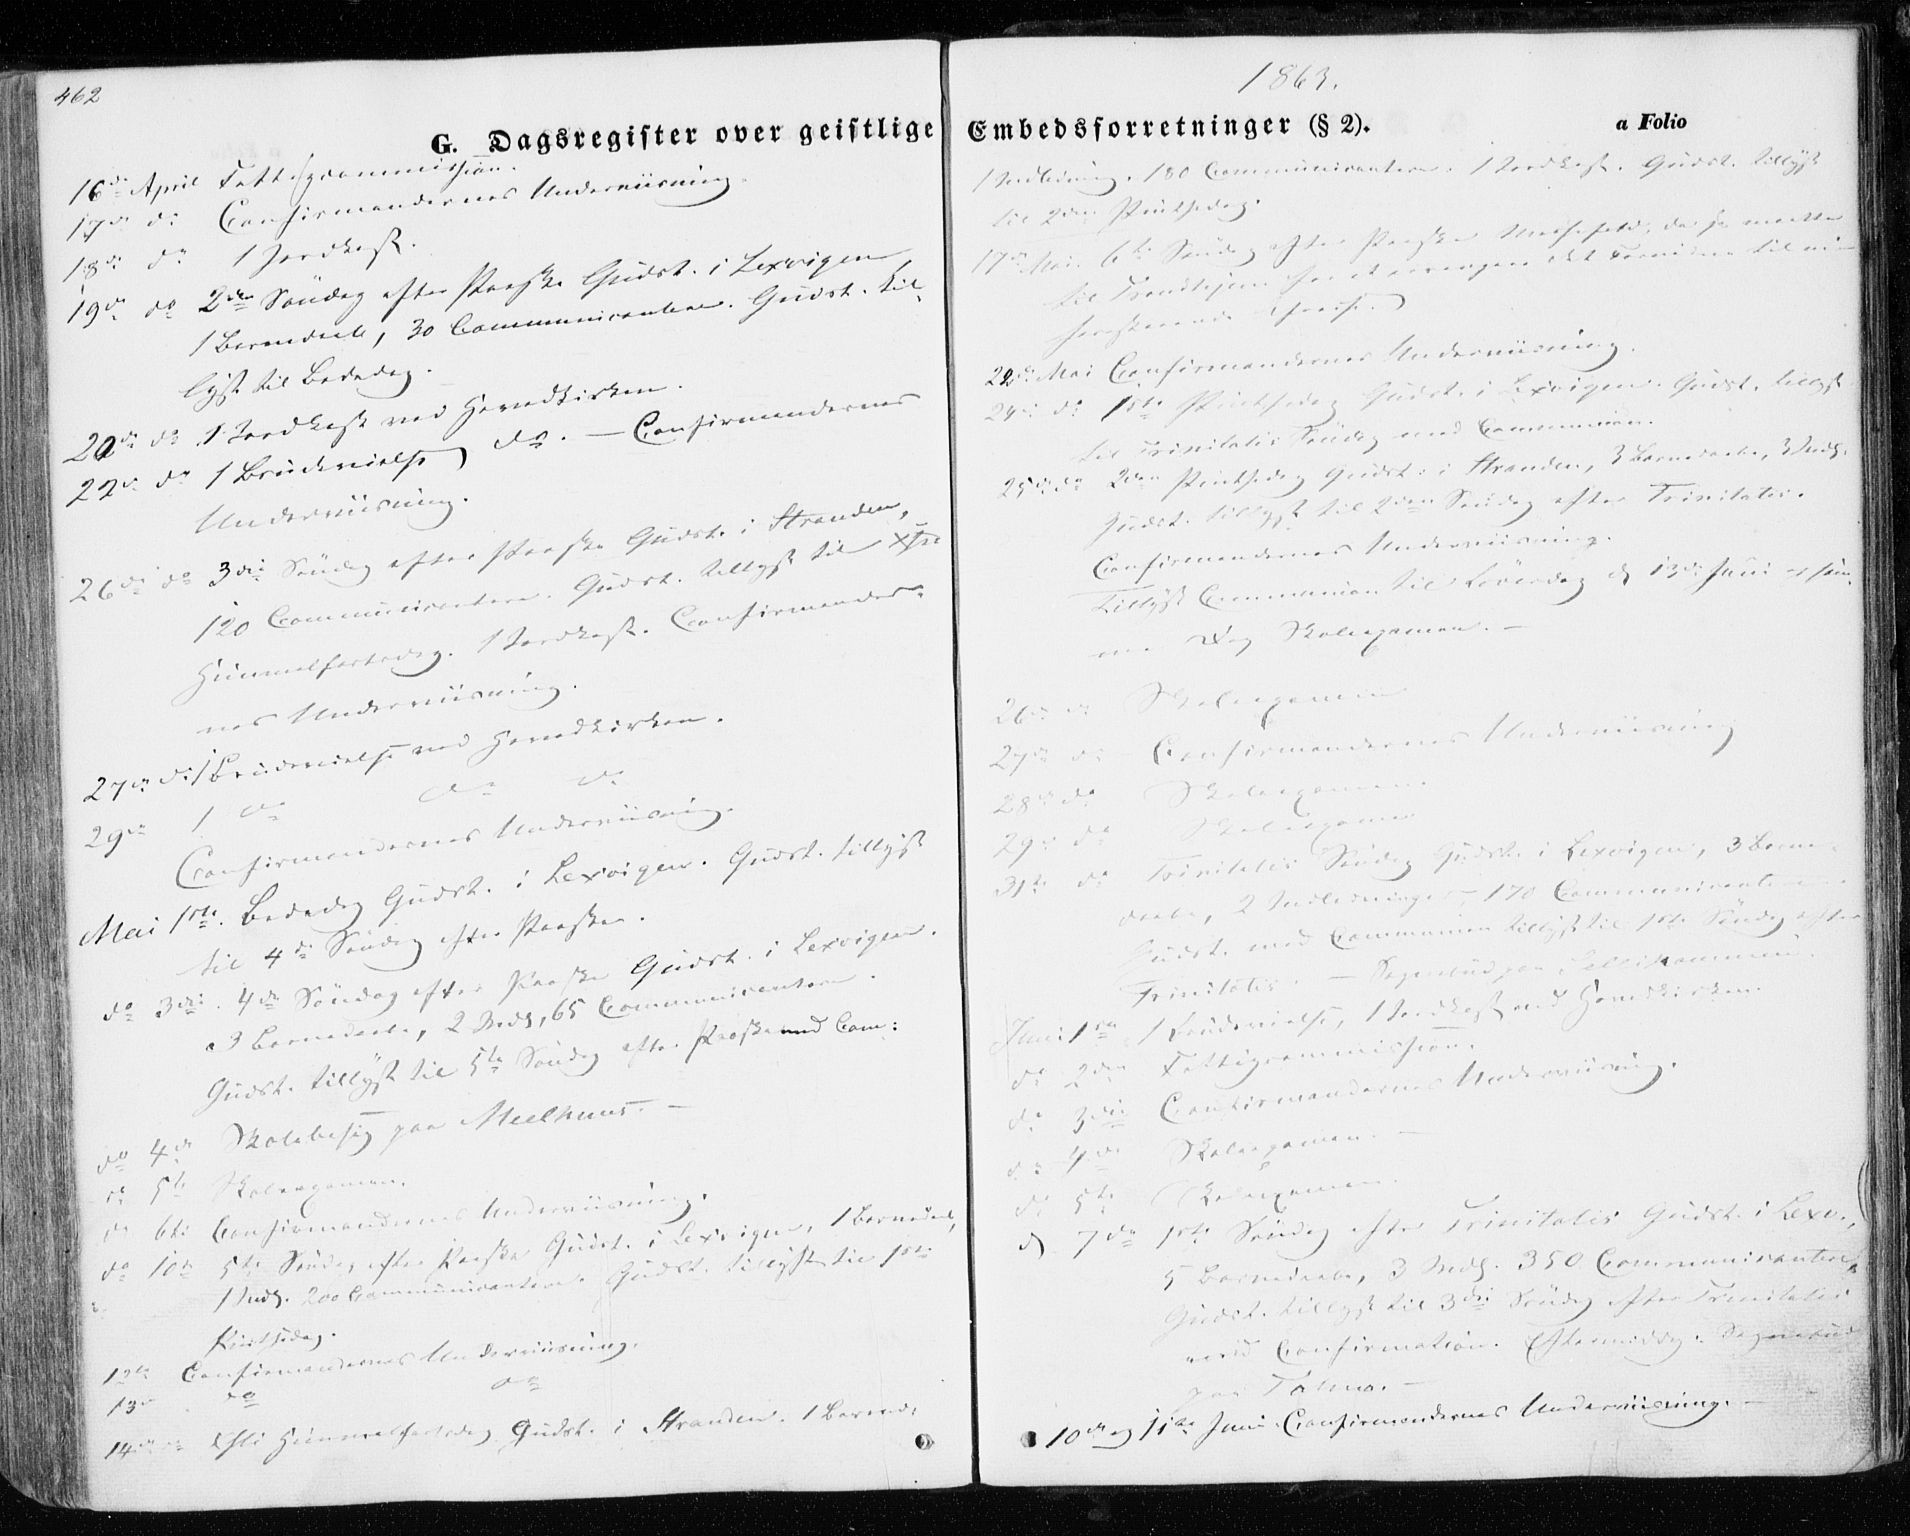 462
1863.
G. Dagsregister over geistlige Embedsforretninger (§ 2).
a Folio
16de April Fattigcommission.
17de do Confirmandernes Underviisning.
18de do 1 Jordkast.
19de do 2den Søndag efter Paaske Gudst. i Lexvigen
1 Barnedaab, 30 Communicantere. Gudst. til-
lyst til Bededag.
20de do 1 Jordkast ved Hovedkirken.
22de do 1 Brudevielse do. – Confirmandernes
Underviisning.
26de do 3die Søndag efter Paaske Gudst. i Stranden,
120 Communicantere. Gudst. tillyst til Xsti
Himmelfartsdag. 1 Jordkast. Confirmander-
nes Underviisning.
27de do 1 Brudevielse ved Hovedkirken.
29de 1 do do do
Confirmandernes Underviisning.
Mai 1ste. Bededag Gudst. i Lexvigen. Gudst. tillyst
til 4de Søndag efter Paaske.
do 3die. 4de Søndag efter Paaske Gudst. i Lexvigen.
3 Barnedaabe, 2 Indl, 65 Communicantere.
Gudst. tillyst til 5te Søndag efter Paaske med Com:
do 4de Skolebesøg paa Meelhuus. –
do 5te Skoleexamen.
do 6te Confirmandernes Underviisning.
do 10de 5te Søndag efter Paaske Gudst. i Lexvigen, 1 Barnedaab,
1 Indl. 200 Communicantere. Gudst. tillyst til 1ste
Pintsedag.
12te Confirmandernes Underviisning.
13de do do
14de do Xsti Himmelfartsdag Gudst. i Stranden. 1 Barned.
1 Indledning. 180 Communicantere. 1 Jordkast. Gudst. tillyst
til 2den Pintsedag.
17de Mai 6te Søndag efter Paaske
til Trondhjem for at arrangere til min
forestaaende
22de Mai Confirmandernes Underviisning.
24de do 1ste Pintsedag Gudst. i Lexvigen. Gudst. tillyst
til Trinitatis Søndag med Communion.
25de do 2den Pintsedag Gudst. i Stranden, 3 Barnedaabe, 3 Indl.
Gudst. tillyst til 2den Søndag efter Trinitatis.
Confirmandernes Underviisning.
Tillyst Communion til Løverdag d 13de Juni og sam-
me Dag Skoleexamen. –
26de do Skoleexamen
27de do Confirmandernes Underviisning
28de do Skoleexamen.
29de do Skoleexamen
31te do Trinitatis Søndag Gudst. i Lexvigen, 3 Barne-
daabe, 2 Indledninger – 170 Communicantere.
Gudst. med Communion tillyst til 1ste Søndag efter
Trinitatis. – Sognebud paa
Juni 1ste 1 Brudevielse, 1 Jordkast ved Hovedkirken.
do 2den Fattigcommission.
do 3die Confirmandernes Underviisning.
do 4de Skoleexamen. –
do 5te Skoleexamen.
d 7de 1ste Søndag efter Trinitatis Gudst. i Lexv.,
5 Barnedaabe, 3 Indl. 350 Communicantere,
Gudst. tillyst til 3die Søndag efter Trinitatis
med Confirmation. Eftermiddag: Sognebud
paa
10de og 11te Juni Confirmandernes Underviisning. –